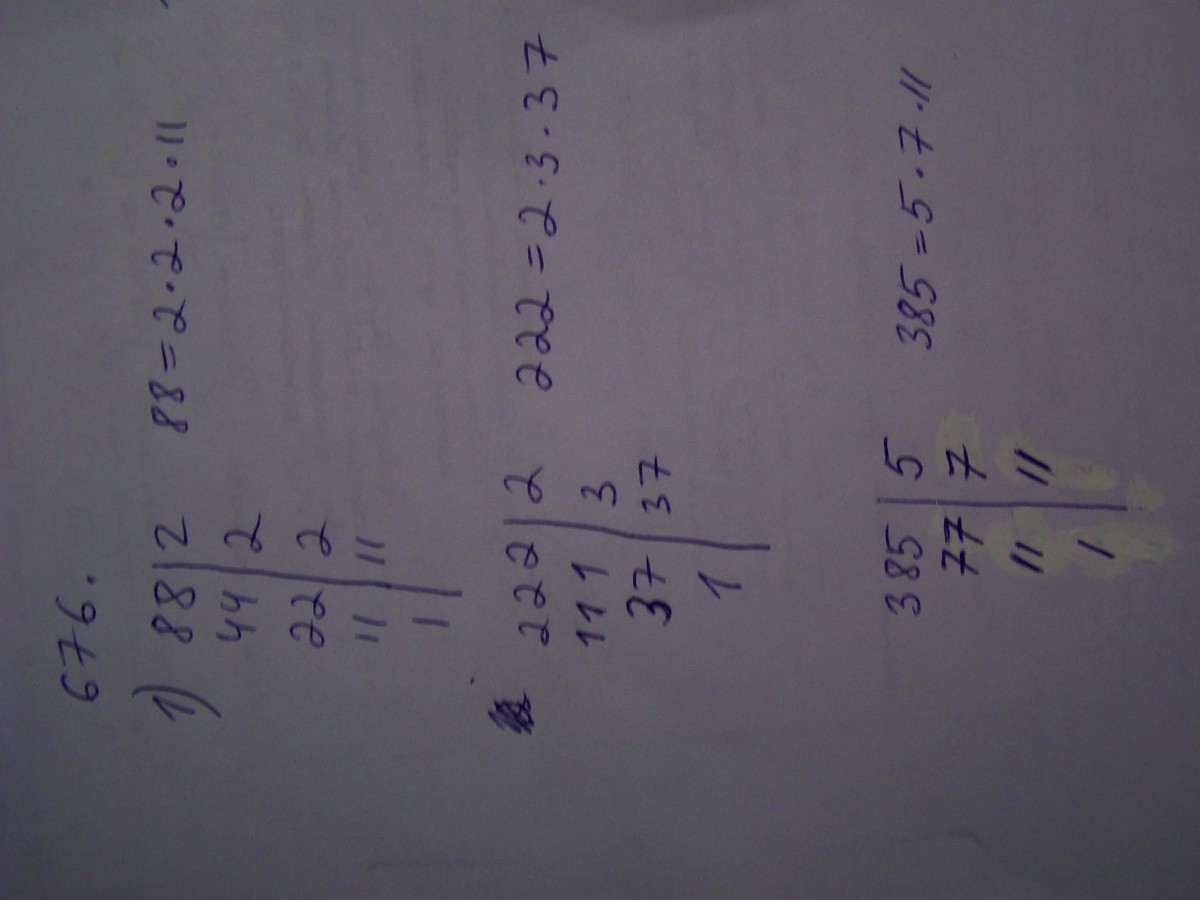 676.
1) 88 | 2 88 = 2 · 2 · 2 · 11
44 | 2
22 | 2
11 | 11
1 |
222 | 2 222 = 2 · 3 · 37
111 | 3
37 | 37
1 |
385 | 5 385 = 5 · 7 · 11
77 | 7
11 | 11
1 |